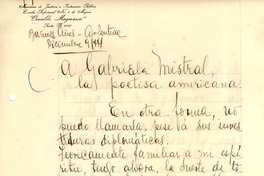 Ministerio de Justicia e Instrucción Pública
Escuela Profesional Nº 5 de Mujeres
"Osvaldo Magnasco"
Buenos Aires - Argentina
Diciembre 9/44
A Gabriela Mistral,
la poetisa americana.
En otra forma, no
puedo llamarla, pese a sus inves
tiduras diplomáticas.
Teóricamente familiar a mi espí-
ritu, tengo ahora, la suerte de to